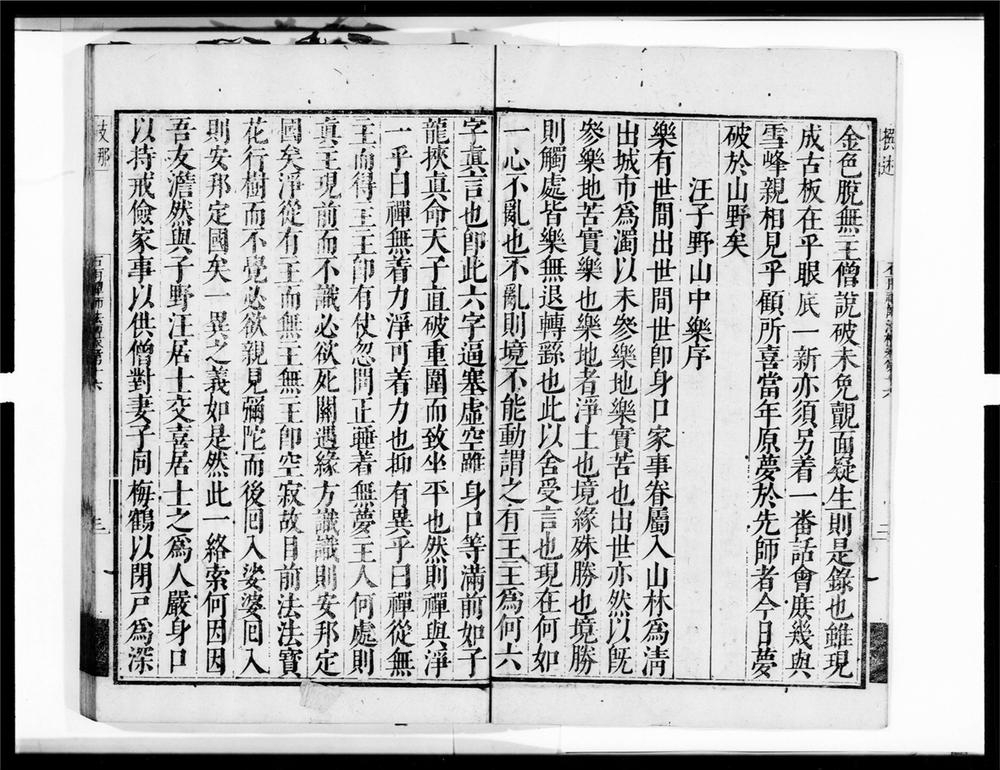 金色脫無王僧說破未免覿面疑生則是錄也雖現
成古板在乎眼底一新亦須另着一番話會庶幾與
雪峰親相見乎顧所喜當年原夢於先師者今日夢
破於山野矣
汪子野山中樂序
樂有世間出世間世卽身口家事眷屬入山林爲淸
出城市爲濁以未叅樂地樂實苦也出世亦然以旣
叅樂地苦實樂也樂地者淨土也境緣殊勝也境勝
則觸處皆樂無退轉繇也此以舍受言也現在何如
一心不亂也不亂則境不能動謂之有王王爲何六
字眞言也卽此六字逼塞虛空雖身口等滿前如子
龍挾眞命天子直破重圍而致坐平也然則禪與淨
一乎曰禪無着力淨可着力也抑有異乎曰禪從無
王而得王王卽有仗忽問正睡着無夢王人何處則
眞王現前而不識必欲死關遇緣方識識則安邦定
國矣淨從有王而無王無王卽空寂故目前法法寶
花行樹而不覺必欲親見彌陀而後囘入娑婆囘入
則安邦定國矣一異之義如是然此一絡索何因因
吾友澹然與子野汪居士交喜居士之爲人嚴身口
以持戒儉家事以供僧對妻子同梅鶴以閉戶爲深
二
支那
三